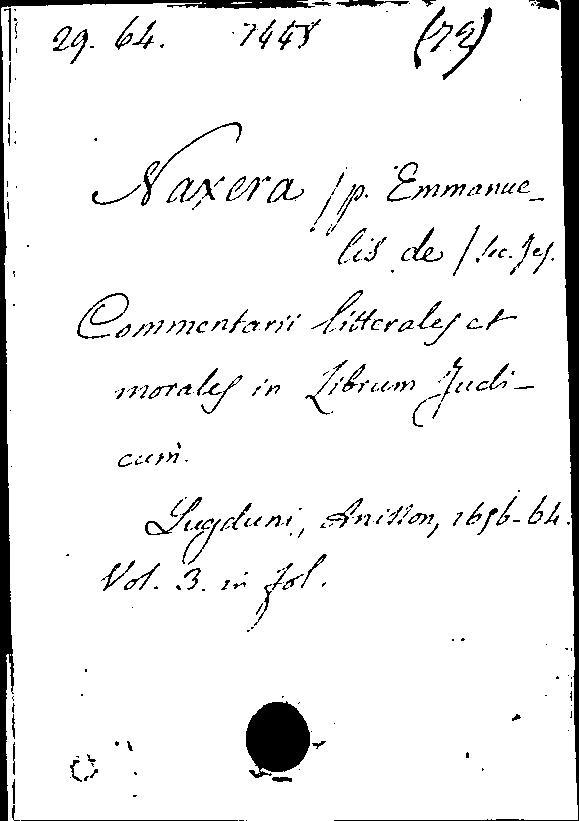 29. 64. 7448 (72)
Naxera /p. Emmanue-
lis de / soc. Jes.
Commentarii litterales et
morales in Librum Judi-
cum.
Lugduni, Anisson, 1656-64.
Vol. 3. in fol.